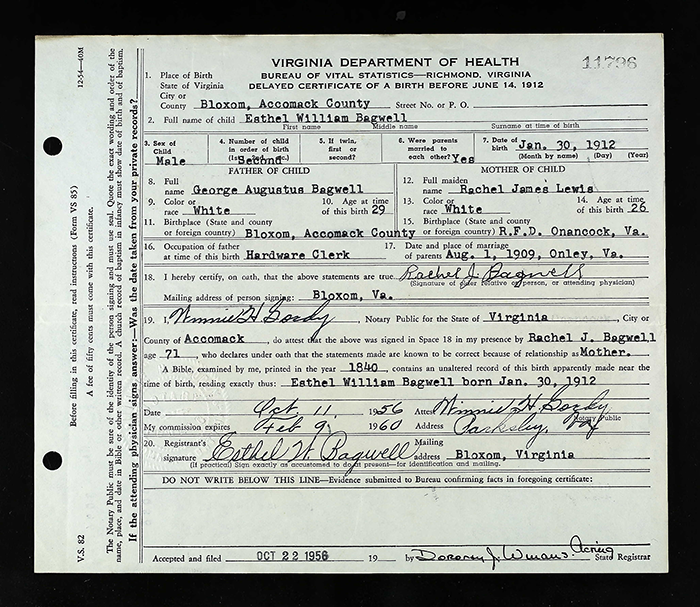 VIRGINIA DEPARTMENT OF HEALTH
BUREAU OF VITAL STATISTICS—RICHMOND, VIRGINIA
DELAYED CERTIFICATE OF A BIRTH BEFORE JUNE 14, 1912
11796
1. Place of Birth
State of Virginia
City or
County Bloxom, Accomack County Street No. or P. O.
2. Full name of child Esthel William Bagwell
First name Middle name Surname at time of birth
3. Sex of Child Male
4. Number of child in order of birth (1st, 2nd, etc.) Second
5. If twin, first or second?
6. Were parents married to each other? Yes
7. Date of Birth Jan. 30, 1912
(Month by name) (Day) (Year)
FATHER OF CHILD
MOTHER OF CHILD
8. Full name George Augustus Bagwell
12. Full maiden name Rachel James Lewis
9. Color or race White
10. Age at time of this birth 29
13. Color or race White
14. Age at time of this birth 26
11. Birthplace (State and county or foreign country) Bloxom, Accomack County
15. Birthplace (State and county or foreign country) R.F.D. Onancock, Va.
16. Occupation of father at time of this birth Hardware Clerk
17. Date and place of marriage of parents Aug. 1, 1909, Onley, Va.
18. I hereby certify, on oath, that the above statements are true. Rachel J. Bagwell
(Signature of older relative or person, or attending physician)
Mailing address of person signing: Bloxom, Va.
19. I, Winnie H Gordy, Notary Public for the State of Virginia, City or
County of Accomack, do attest that the above was signed in Space 18 in my presence by Rachel J. Bagwell
age 71, who declares under oath that the statements made are known to be correct because of relationship as Mother.
A Bible, examined by me, printed in the year 1840, contains an unaltered record of this birth apparently made near the
time of birth, reading exactly thus: Esthel William Bagwell born Jan. 30, 1912
Date Oct. 11, 1956 Attest Winnie H Gordy
Notary Public
My commission expires Feb 9 1960 Address Parksley, Va
20. Registrant's signature Esthel W Bagwell Mailing address Bloxom, Virginia
(If practical) Sign exactly as accustomed to do at present—for identification and mailing.
DO NOT WRITE BELOW THIS LINE—Evidence submitted to Bureau confirming facts in foregoing certificate:
Accepted and filed OCT 22 1956 19 by Dorothy J. Acting State Registrar
V.S. 82
12-54—40M
Before filling in this certificate, read instructions (Form VS 85)
A fee of fifty cents must come with this certificate.
The Notary Public must be sure of the identity of the person signing and must use seal. Quote the exact wording and order of the
name, place, and date in Bible or other written record. A church record of baptism in infancy must show date of birth and of baptism.
If the attending physician signs answer:—Was the date taken from your private records?